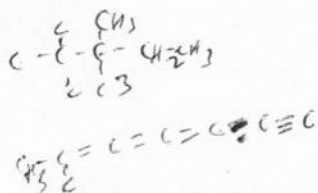 C CH3
C - C - C - CH2CH3
C C 3
CH3 C = C = C = C = C ≡ C
C